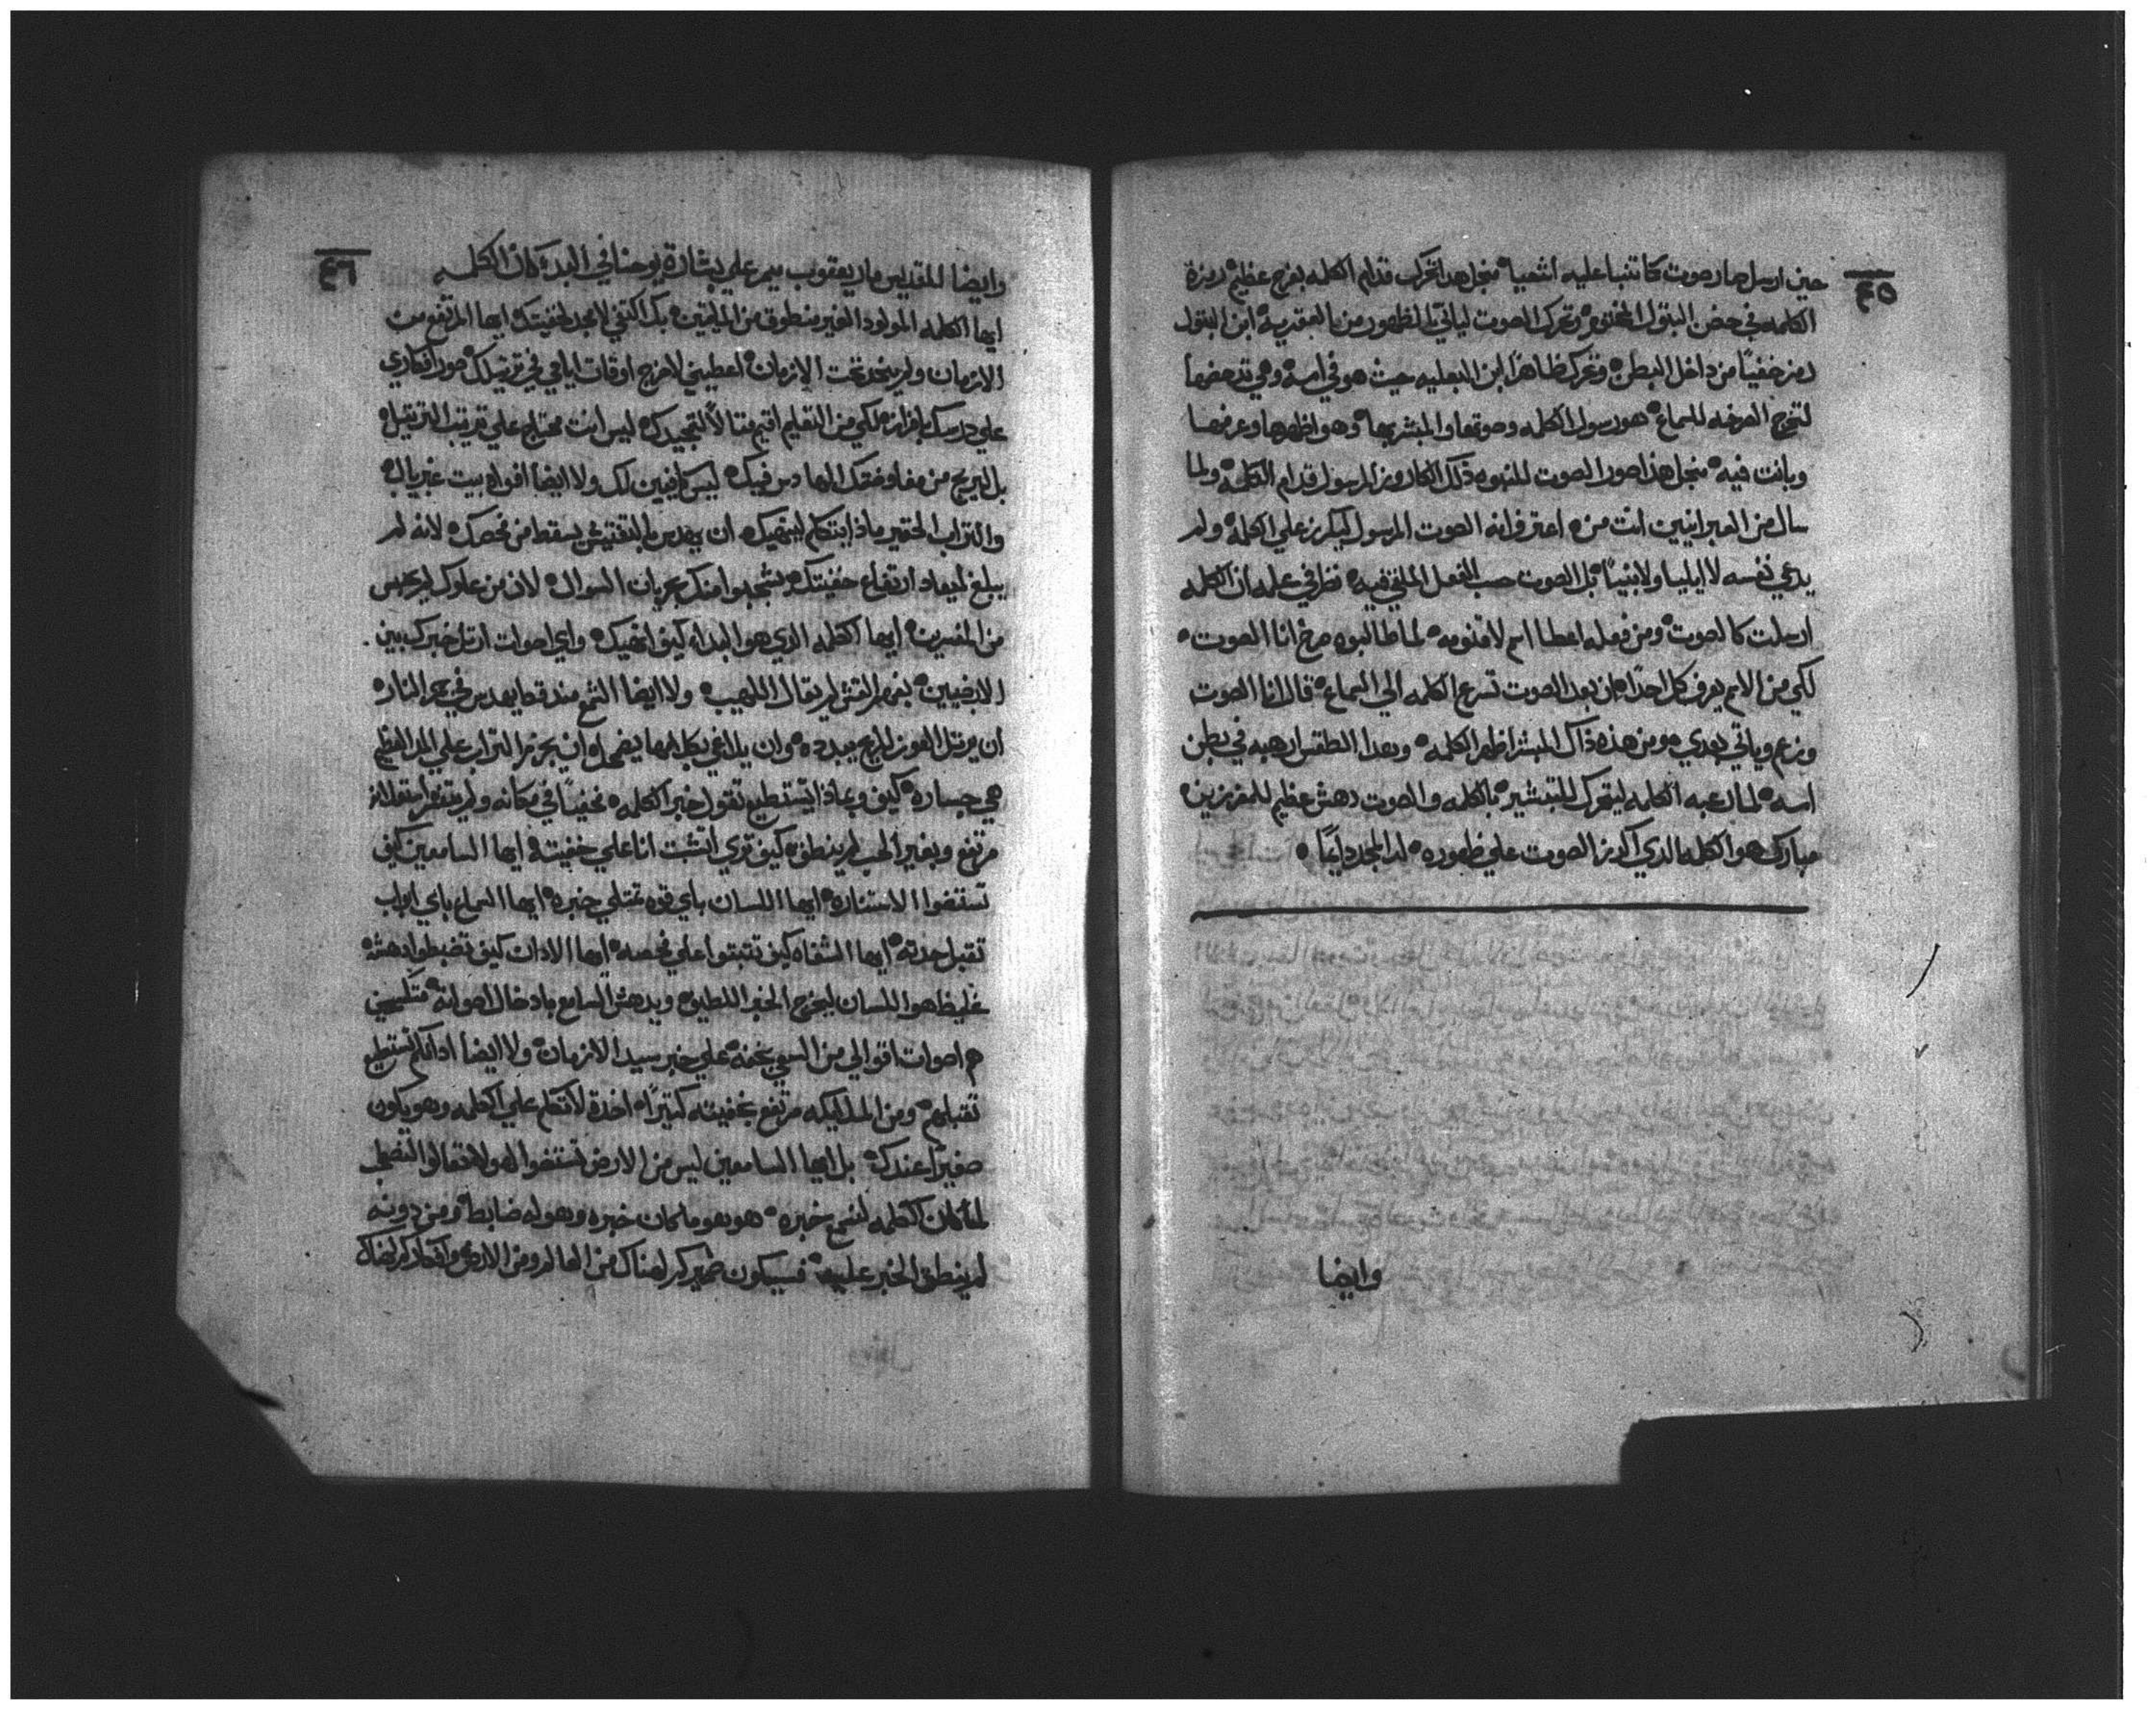 ٤٥
حين ارسل صار صوت كما تنبا عليه اشعيا ه منجل هدا تحرك قدام الكلمه بفرح عظيم ه رمزة
الكلمه في حضن البتول المختوم ه وتحرك الصوت لياتي الظهور من العقرية ه ابن البتول
رمز خفيًا من داخل البطن ه وتحرك ظاهرًا ابن البعليه حيث هو في امه ه وهي
لتخرج الصرخه للسماع ه هو رسول الكلمه وصوتها والمبشر بها ه وهو اظهرها وعرفها
وبانت فيه ه منجل هذا صور الصوت للنبوه ذلك الكاروز المرسول قدام الكلمة ه ولما
سال من العبرانيين انت من ه اعترف انه الصوت المرسول ليكرز على الكلمة ه ولم
يدعي نفسه لا ايليا ولا نبيًا ه بل الصوت حسب الفعل الملقي فيه ه نظر في علمه ان الكلمه
ارسلت كالصوت ه ومن فعله اعطا اسم لاقنومه ه لما طالبوه صرخ انا الصوت ه
لكي من الاسم يعرف كل احدًا ه ان بعد الصوت تسرع الكلمه الي السماع ه قال انا الصوت
وياتي بعدي ه ومن هذه ذاك المبشر اظهر الكلمه ه وبهدا الطقس ارهبه في بطن
امه ه لما ارعبه الكلمه ليتحرك للتبشير ه بالكلمه والصوت دهش عظيم للمفرزين ه
مبارك هو الكلمه الذي اكرز الصوت علي ظهوره ه له المجد دايمًا ه
وايضا
٤٦
وايضا للقديس مار يعقوب ميمر علي بشارة يوحنا في البدء كان الكلمه
ايها الكلمه المولود الغير منطوق من الملايين ه بك اكتفي لامجد لخفيتك ه ايها المرتفع من
الازمان ولم ينحد تحت الازمان ه اعطيني لاخرج اوقات ايامي في ترتيلك ه صور افكاري
علي درسك بافراز ه لكي من التعليم اقيم مثالًا لتمجيدك ه ليس انت محتاج علي تقريب التراتيل ه
بل اتريح من مفاوضتك الها دس فيك ه ليس كافيين لك ولا ايضا افواه بيت غبريال ه
والتراب الحقير ماذا يتكلم لينهيك ه ان يهدس بالتفتيش يسقط من فحصك ه لانه لم
يبلغ لميعاد ارتفاع خفيتك ه انت جريان السوال ه لان من علوك
من المفسرين ه ايها الكلمه الدي هو البداه كيف انهيك ه واي اصوات ارتل خبرك بين
الارضيين ه القش لم يقال اللهيب ه ولا ايضا الشمع مند قط يهدس في جمر النار ه
ان يرتل العوز الريح يبدده ه وان بكل يضمحل ه ان يحرز التراب علي المد العظيم
هي جساره ه كيف وبماذا تستطيع تقول خبر الكلمه ه مخفيًا في مكانه ولم
مرتفع وبغير الحب لم ينطق ه كيف تري اتشبت انا علي خفيته ه ايها السامعين كيف
تستقضوا الاستناره ه ايها اللسان باي قوه تمتلي خبره ه ايها السماع باي ابواب
تقبل حدته ه ايها الشفاه كيف تتبتوا علي فحصه ه ايها الادان كيف تضبطوا دهشه
غليظا هو اللسان ليخرج الخبر اللطيف ه ويدهش السامع بادخال اصواته ه
هم اصوات اقوالي من السعي بخفه ه علي خبر سيد الازمان ه ولا ايضا ادانكم تستطيع
تقبلهم ه ومن الملايكه مرتفع بخفيته كتيرًا ه اخدة لاتكلم علي الكلمه وهو يكون
صغيرًا عندك ه بل ايها السامعين ليس من الارض تستقضوا له ه ولا تعالوا
لما كان الكلمه خبره ه هو هو ما كان خبره وهو له ضابط ه ومن دونه
لم ينطق الخبر عليه ه فسيكون ضميركم لهناك من العالم ومن الارض وافكاركم لهناك